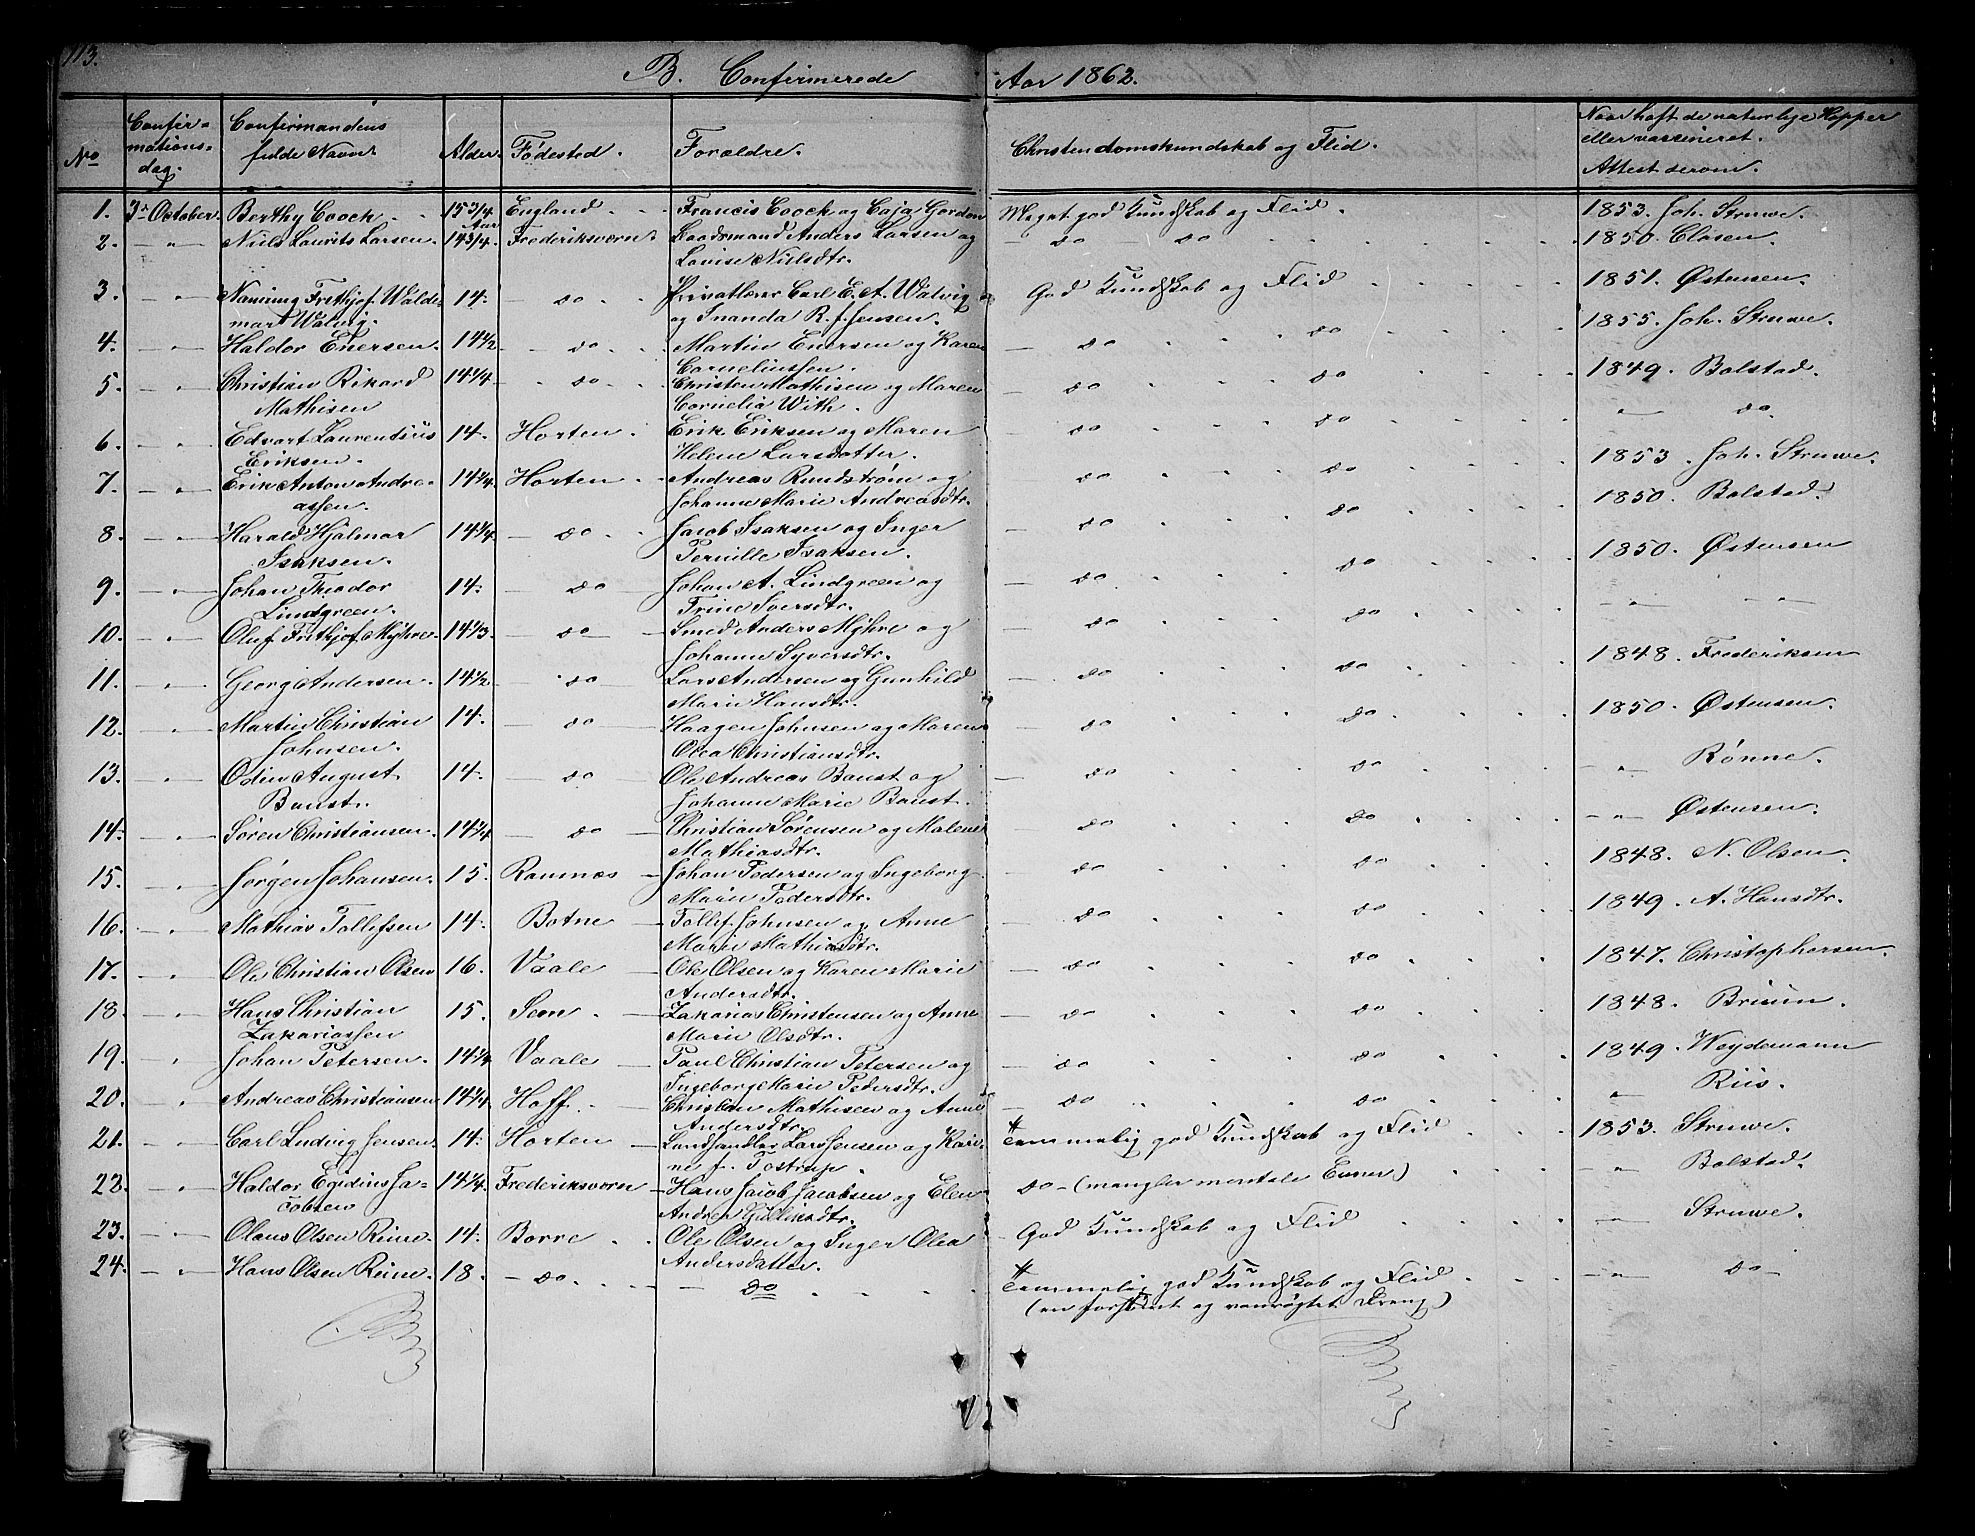 113.
B. Confirmerede Aar 1862.
No
Confir=
mations=
dag.
Confirmandens
fulde Navn.
Alder.
Fødested.
Forældre.
Christendomskundskab og Flid.
Naar haft de naturlige Kopper
eller vaccineret.
Attest derom.
1. 3die October. Berthy Coock 15 3/4 Aar England Francis Coock og Caja Gordon Meget god Kundskab og Flid. 1853. Joh. Struwe.
2. — " — Niels Laurits Larsen. 14 3/4. Frederiksværn. Baadsmand Anders Larsen og — do do 1850. Clasen.
Lovise Nielsdtr.
3. — " — Nanning Frithjof Walde- 14. — do Privatlærer Carl E. A. Walvig God Kundskab og Flid 1851. Østensen.
mar Walvig. og Inanda R. f. Jensen.
4. — " — Haldor Enersen. 14 1/2 — do Martin Enersen og Karen — do do 1855. Joh. Struwe.
Corneliussen.
5. — " — Christian Rikard 14 1/4 do Christen Mathisen og Maren do do 1849. Bolstad.
Mathisen Cornelia With.
6. — " — Edvart Laurentius 14. Horten Erik Eriksen og Maren do do — " — do.
Eriksen. Helene Larsdatter.
7. — " — Erik Anton Andre- 14 1/4 Horten Andreas Rundstrøm og do do 1853. Joh. Struwe.
assen. Johanne Marie Andreasdtr.
8. — " — Harald Hjalmar 14 1/4 — do Jacob Isaksen og Inger — do do 1850. Bolstad.
Isaksen. Pernille Isaksen.
9. — " — Johan Theodor 14. — do Johan A. Lindgreen og — do do 1850. Østensen
Lindgreen. Trine Iversdtr.
10. — " — Oluf Frithjof Myhre 14 1/3. do Smed Anders Myhre og — do do — " — — " —
Johanne Syversdtr.
11. — " — Georg Andersen. 14 1/2 — do Lars Andersen og Gunhild do do 1848. Frederiksen
Marie Hansdtr.
12. — " — Martin Christian 14. — do Haagen Johnsen og Maren do do 1850. Østensen.
Johnsen. Olea Christiansdtr.
13. — " — Odin August 14. do Ole Andreas Baust og — do do — " — Rønne.
Baust. Johanne Marie Baust.
14. — " — Søren Christiansen. 14 1/4. — do Christian Sørensen og Malene — do do — " — Østensen.
Mathiasdtr.
15. — " — Jørgen Johansen. 15. Ramnæs Johan Pedersen og Ingeborg do do 1848. N. Olsen.
Marie Pedersdtr.
16. — " — Mathias Tollefsen 14. Botne Tollef Johnsen og Anne — do do 1849. A. Hansdtr.
Marie Mathiasdtr.
17. — " — Ole Christian Olsen 16. Vaale Ole Olsen og Karen Marie — do do 1847. Christophersen.
Andersdtr.
18. — " — Hans Christian 15. Sem Zakarias Christensen og Anne — do do 1848. Bruun.
Zakariassen Marie Olsdtr.
19. — " — Johan Petersen. 14 1/4 Vaale Paul Christian Petersen og — do do 1849. Weydemann
Ingeborg Marie Pedersdtr.
20. — " — Andreas Christiansen 14 1/4 Hoff. Christian Mathisen og Anne — do do — " — Riis.
Andersdtr.
21. — " — Carl Ludvig Jensen. 14. Horten Landhandler Lars Jensen og Kari- Temmelig god Kundskab og Flid 1853. Struwe.
ne f. Tostrup.
22. — " — Haldor Egidius Ja- 14 1/4. Frederiksværn Hans Jacob Jacobsen og Elen do — (mangler mentale Evner) — " — Bolstad.
cobsen Andrea Gulliksdtr.
23. — " — Olaus Olsen Reine. 14. Borre Ole Olsen og Inger Olea God Kundskab og Flid — " — Struwe.
Andersdatter.
24. — " — Hans Olsen Reine. 18. — do — do Temmelig god Kundskab og Flid — " — do —
(en forsømt og vanrøgtet Dreng)